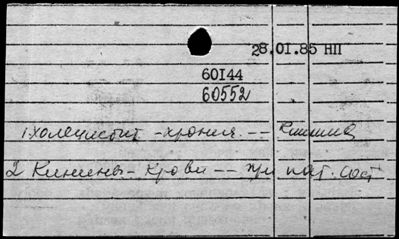 28.01.85 НП
60144
60552
1 холецистит - хронич. -- клиника
2 Кинины - крови -- при пат. сост